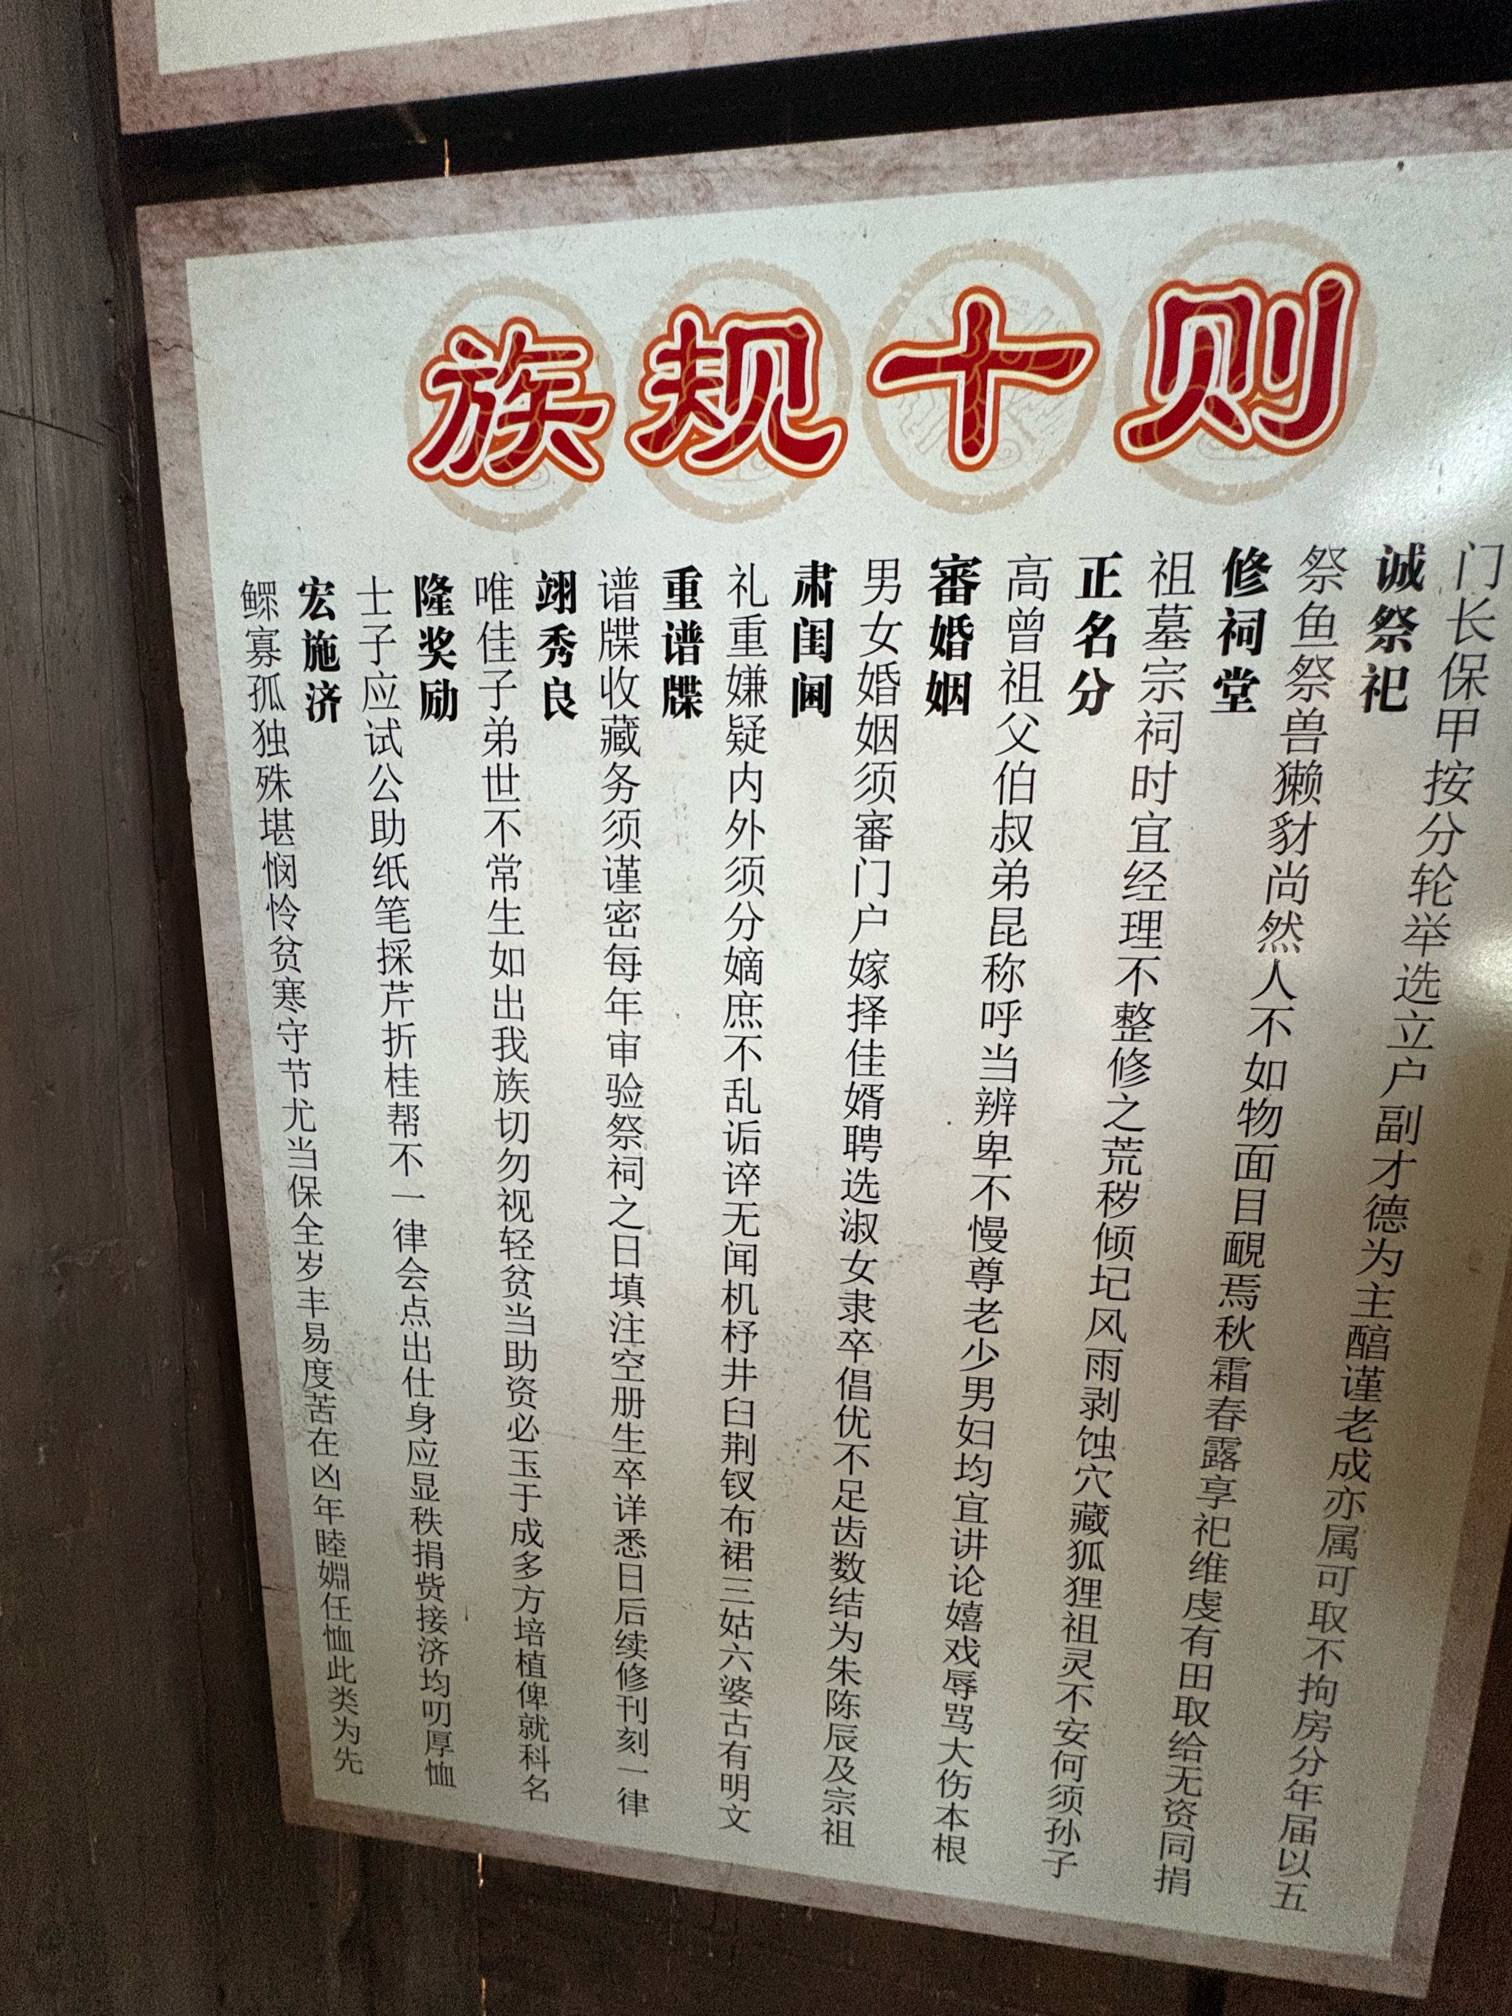 族规十则
门长保甲按分轮举选立户副才德为主醕谨老成亦属可取不拘房分年届以五
诚祭祀
祭鱼祭兽獭豺尚然人不如物面目靦焉秋霜春露享祀维虔有田取给无资同捐
修祠堂
祖墓宗祠时宜经理不整修之荒秽倾圮风雨剥蚀穴藏狐狸祖灵不安何须孙子
正名分
高曾祖父伯叔弟昆称呼当辨卑不慢尊老少男妇均宜讲论嬉戏辱骂大伤本根
審婚姻
男女婚姻须審门户嫁择佳婿聘选淑女隶卒倡优不足齿数结为朱陈辰及宗祖
肃闺阃
礼重嫌疑内外须分嫡庶不乱诟谇无闻机杼井臼荆钗布裙三姑六婆古有明文
重谱牒
谱牒收藏务须谨密每年审验祭祠之日填注空册生卒详悉日后续修刊刻一律
翊秀良
唯佳子弟世不常生如出我族切勿视轻贫当助资必玉于成多方培植俾就科名
隆奖励
士子应试公助纸笔採芹折桂帮不一律会点出仕身应显秩捐赀接济均叨厚恤
宏施济
鳏寡孤独殊堪悯怜贫寒守节尤当保全岁丰易度苦在凶年睦婣任恤此类为先